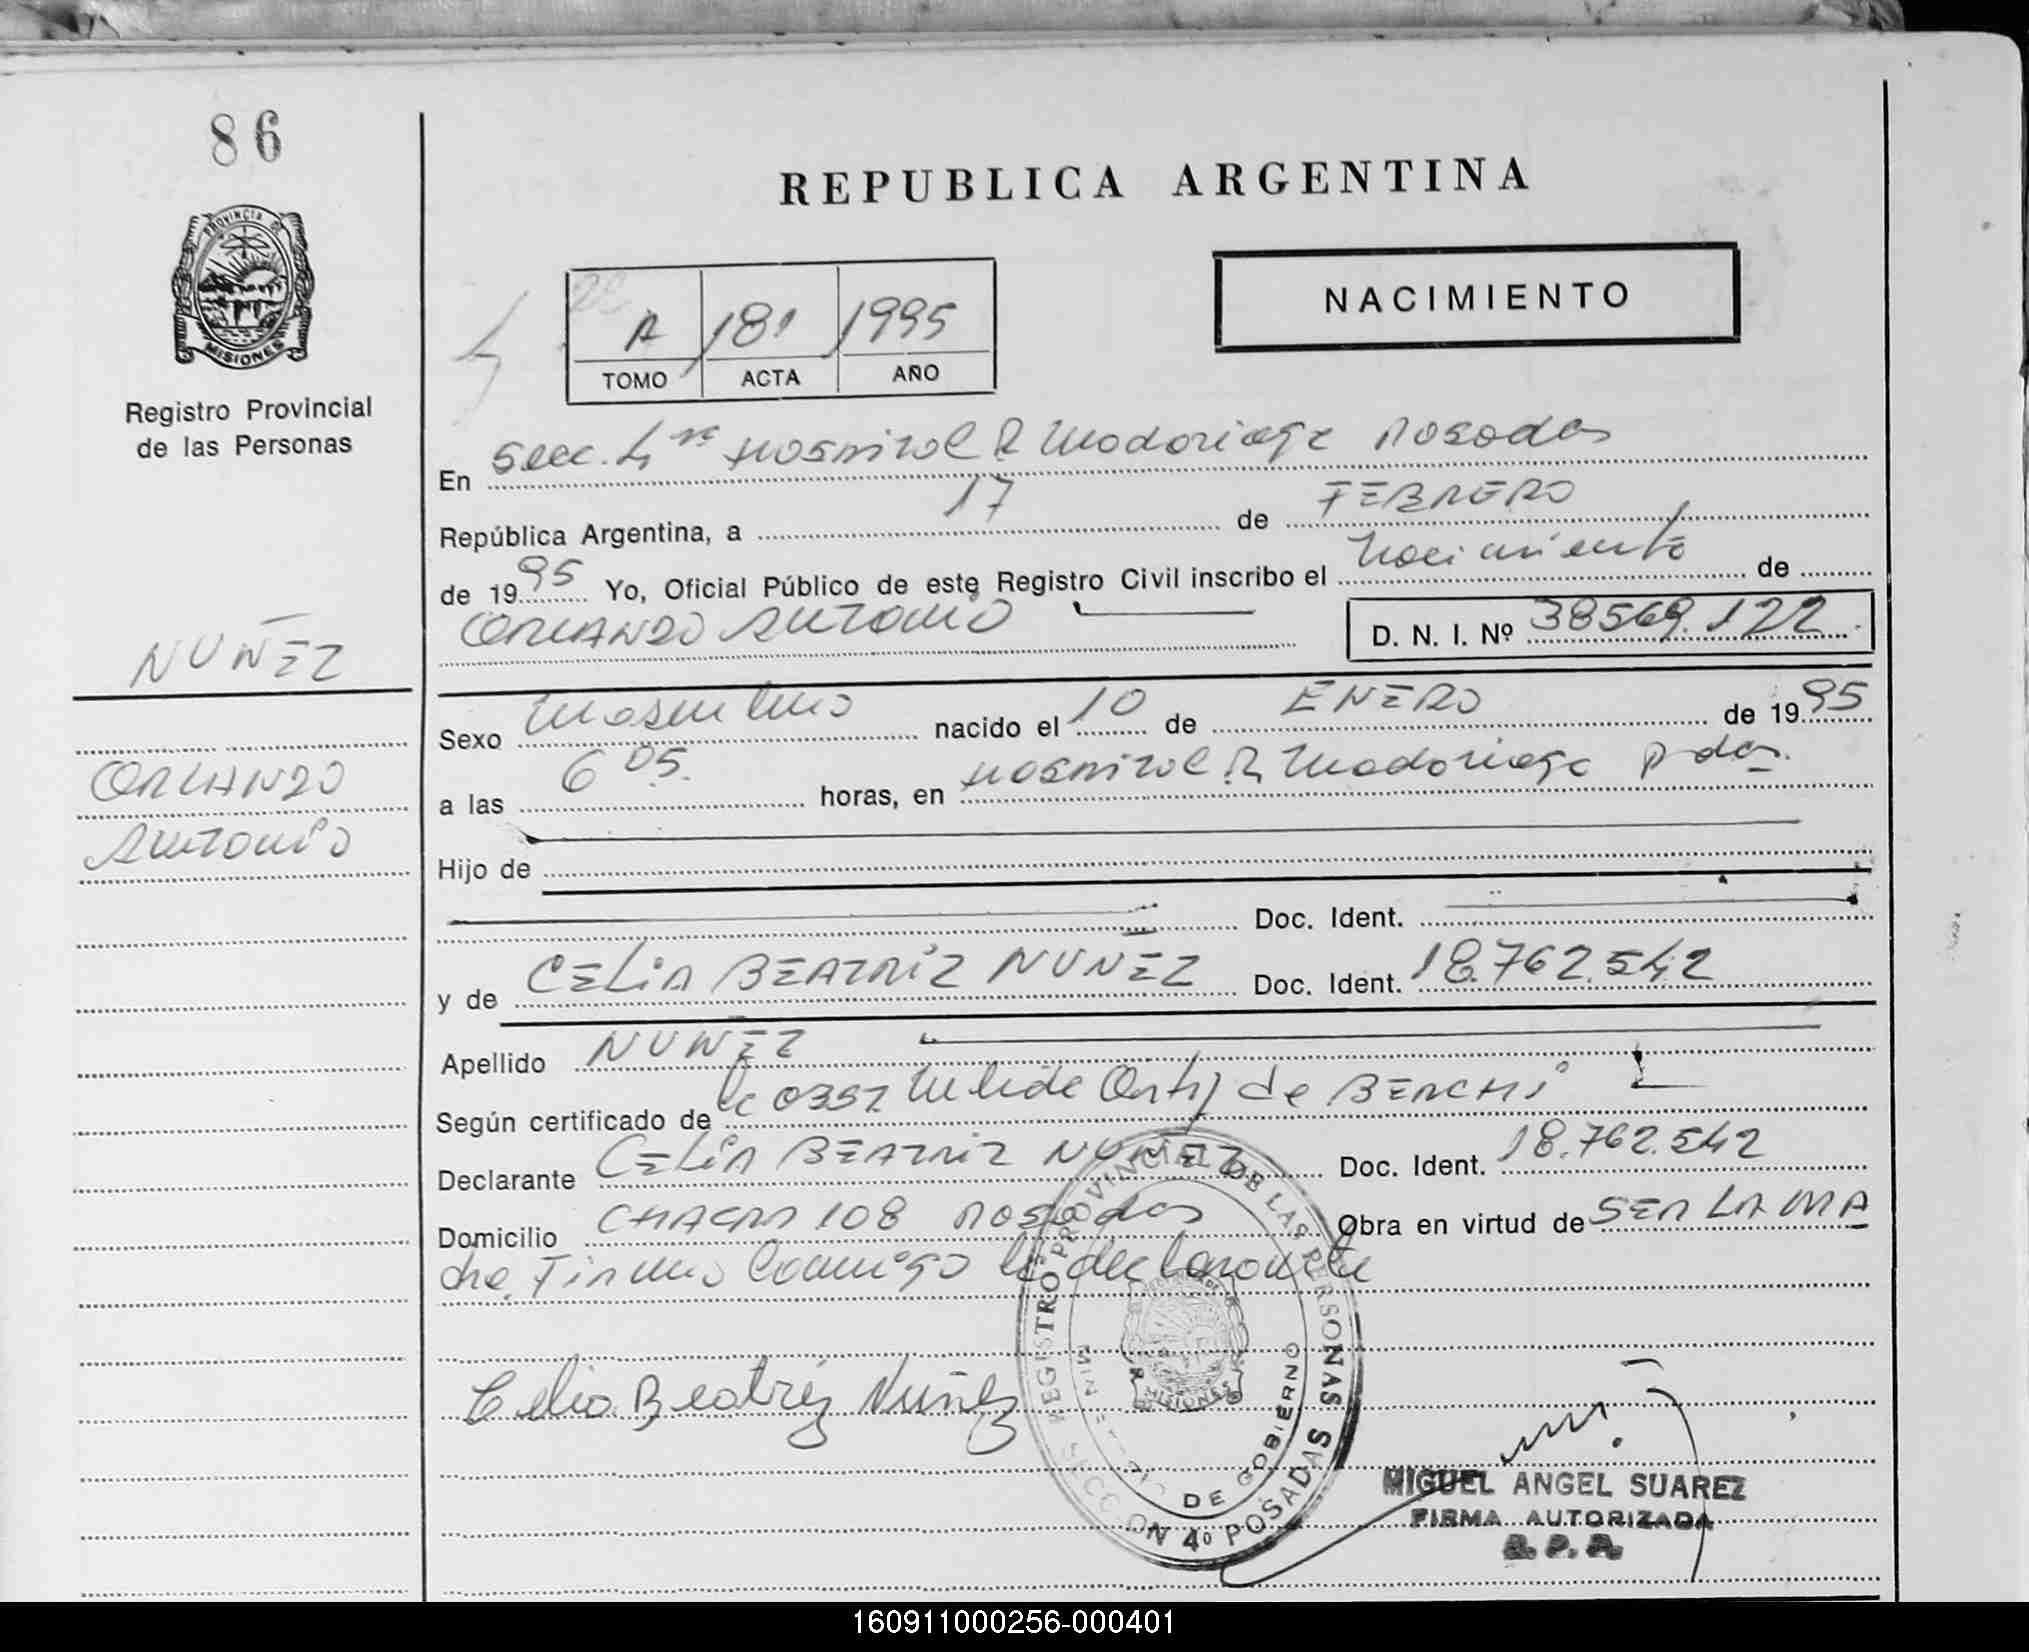 86
PROVINCIA DE
MISIONES
Registro Provincial
de las Personas
NUÑEZ
ORLANDO
ANTONIO
REPUBLICA ARGENTINA
A 181 1995
TOMO ACTA AÑO
NACIMIENTO
En Secc. 4ta Hospital R Madariaga Posadas
República Argentina, a 17 de FEBRERO
de 1995 Yo, Oficial Público de este Registro Civil inscribo el Nacimiento de
ORLANDO ANTONIO D. N. I. Nº 38569.122
Sexo Masculino nacido el 10 de ENERO de 1995
a las 6 05. horas, en Hospital R Madariaga Pdas.
Hijo de
Doc. Ident.
y de CELIA BEATRIZ NUNEZ Doc. Ident. 18.762.542
Apellido NUÑEZ
Según certificado de Ortiz de BERCHI
Declarante CELIA BEATRIZ NUÑEZ Doc. Ident. 18.762.542
Domicilio CHACRA 108 Posadas Obra en virtud de SER LA MA
dre. Firma Conmigo la declarante
Celia Beatriz Nuñez
REGISTRO PROVINCIAL DE LAS PERSONAS
SECCION 4º POSADAS
MINISTERIO DE GOBIERNO
MISIONES
MIGUEL ANGEL SUAREZ
FIRMA AUTORIZADA
R. P. P.
160911000256-000401